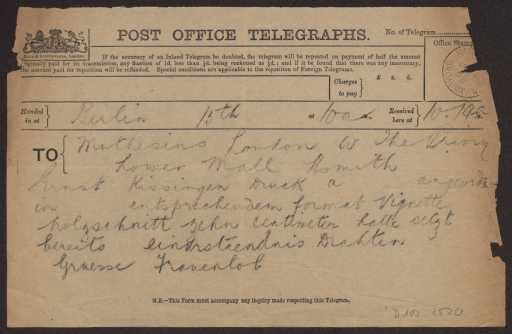 POST OFFICE TELEGRAPHS.
No. of Telegram
If the accuracy of an Inland Telegram be doubted, the telegram will be repeated on payment of half the amount
originally paid for its transmission, any fraction of 1d. less than ½d. being reckoned as ½d.; and if it be found that there was any inaccuracy,
the amount paid for repetition will be refunded. Special conditions are applicable to the repetition of Foreign Telegrams.
Office Stamp
Charges
to pay
£ s. d.
Handed
in at
Berlin 10th at 10
Received
here at
10.19
TO
Muthesius London W The Priory
Lower Mall Hsmith
Ernst Kissingen Druck a
in entsprechendem format Vignette
holzschnitt zehn centimeter halle setzt
bereits einverstaendnis Drahten
Gruesse Frauenlob
N.B.—This Form must accompany any inquiry made respecting this Telegram.